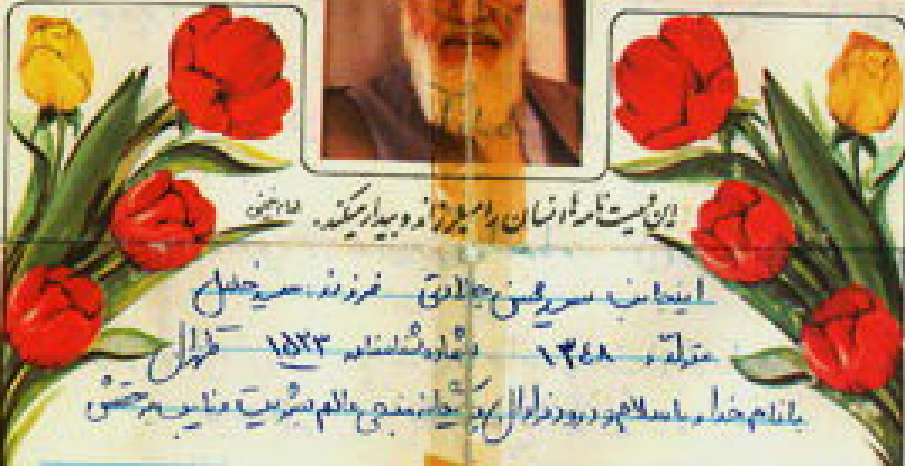 این وصیت نامه‌ها انسان را میلرزاند و بیدار میکند. امام خمینی
اینجانب سید حسن فرزند: سید خلیل
متولد: ۱۳۴۸ شماره شناسنامه ۱۵۲۳ تهران
بانام خدا و با سلام و درود فراوان بر منجی عالم بشریت و نایب بر حقش